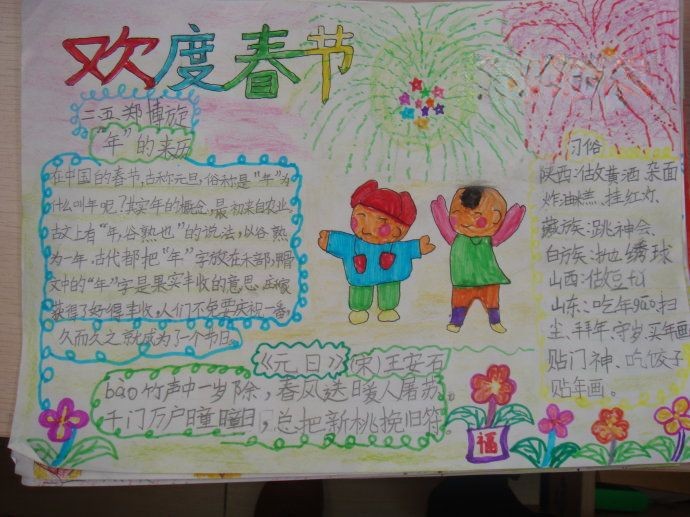 欢度春节
二五郑博旋
"年"的来历
在中国的春节,古称元旦,俗称是"年"为
什么叫年呢?其实年的概念,最初来自农业。
古文上有"年,谷熟也"的说法,以谷熟
为一年.古代都把"年"字放在禾部,甲骨
文中的"年"字是果实丰收的意思.庄家
获得了好得丰收,人们不免要庆祝一番。
久而久之就成为了个节日。
《元日》(宋)王安石
bào竹声中一岁除,春风送日暖人屠苏。
千门万户瞳瞳日,总把新桃挽旧符。
福
习俗
陕西:做黄酒 菜面
炸油糕、挂红灯
藏族:跳神会、
白族:抛绣球
山西:做
山东:吃年gāo扫
尘、拜年、守岁、买年画
贴门神、吃饺子
贴年画。